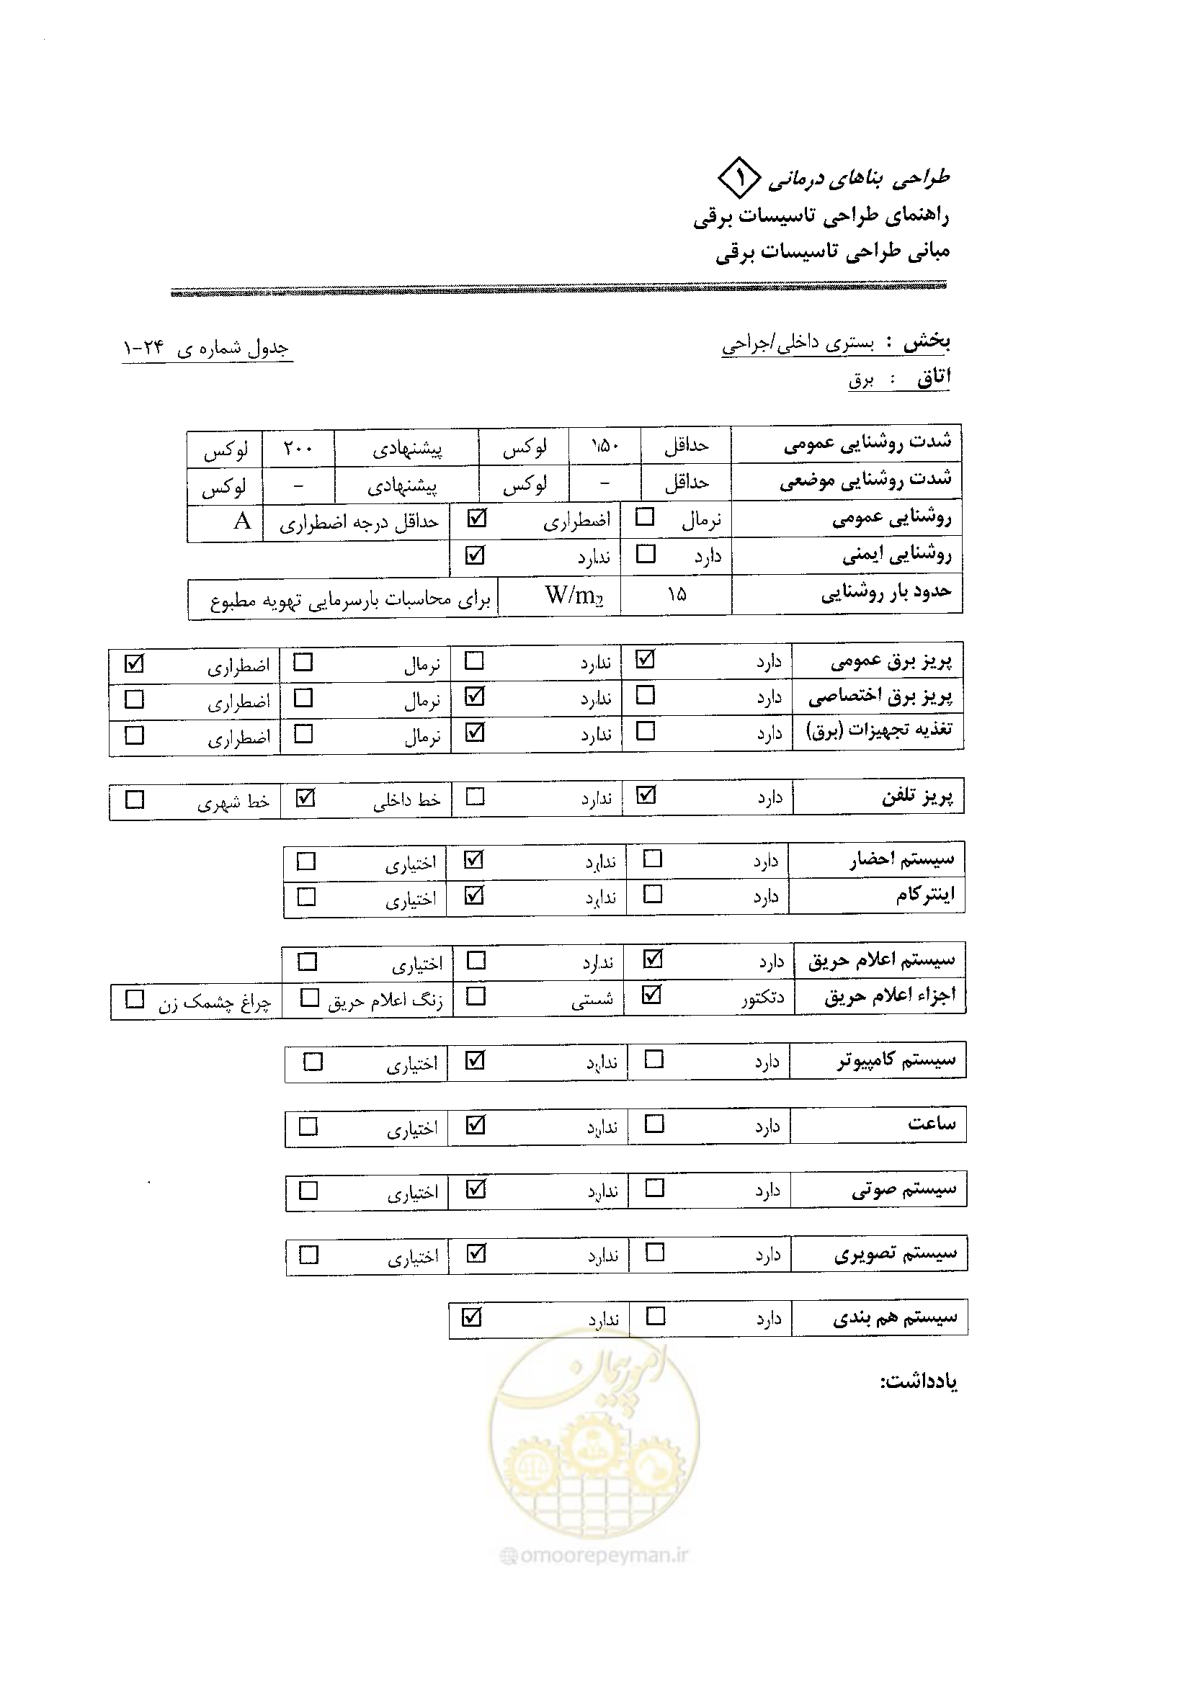 طراحی بناهای درمانی ۱
راهنمای طراحی تاسیسات برقی
مبانی طراحی تاسیسات برقی
بخش : بستری داخلی/جراحی
جدول شماره ی ۲۴-۱
اتاق : برق
شدت روشنایی عمومی حداقل ۱۵۰ لوکس پیشنهادی ۲۰۰ لوکس
شدت روشنایی موضعی حداقل – لوکس پیشنهادی – لوکس
روشنایی عمومی نرمال ☐ اضطراری ☑ حداقل درجه اضطراری A
روشنایی ایمنی دارد ☐ ندارد ☑
حدود بار روشنایی ۱۵ W/m2 برای محاسبات بارسرمایی تهویه مطبوع
پریز برق عمومی دارد ☑ ندارد ☐ نرمال ☐ اضطراری ☑
پریز برق اختصاصی دارد ☐ ندارد ☑ نرمال ☐ اضطراری ☐
تغذیه تجهیزات (برق) دارد ☐ ندارد ☑ نرمال ☐ اضطراری ☐
پریز تلفن دارد ☑ ندارد ☐ خط داخلی ☑ خط شهری ☐
سیستم احضار دارد ☐ ندارد ☑ اختیاری ☐
اینترکام دارد ☐ ندارد ☑ اختیاری ☐
سیستم اعلام حریق دارد ☑ ندارد ☐ اختیاری ☐
اجزاء اعلام حریق دتکتور ☑ شستی ☐ زنگ اعلام حریق ☐ چراغ چشمک زن ☐
سیستم کامپیوتر دارد ☐ ندارد ☑ اختیاری ☐
ساعت دارد ☐ ندارد ☑ اختیاری ☐
سیستم صوتی دارد ☐ ندارد ☑ اختیاری ☐
سیستم تصویری دارد ☐ ندارد ☑ اختیاری ☐
سیستم هم بندی دارد ☐ ندارد ☑
یادداشت:
امور پیمان
@omoorepeyman.ir